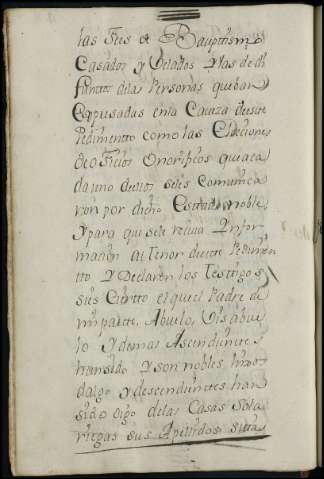 las Fees de Bauptismo
Casados y Velados y las de di
funttos de las Personas que ban
Expusadas en la Caveza de este
Pedimentto como las Elecziones
de oficios Onorificos que a ca
da uno de ellos se les Comunica
ron por dicho Estado noble
y para que se reciva Ynfor
mazion al tenor de este Pedimen
tto y Declaren los Testigos
sus Ciertto el que el Padre de
mi partte, Abuelo, Visabue
lo y demas Ascendientes
han sido y son nobles hijos
dalgo y descendientes han
sido digo de las Casas Sola
riegas sus Apellidos sitta